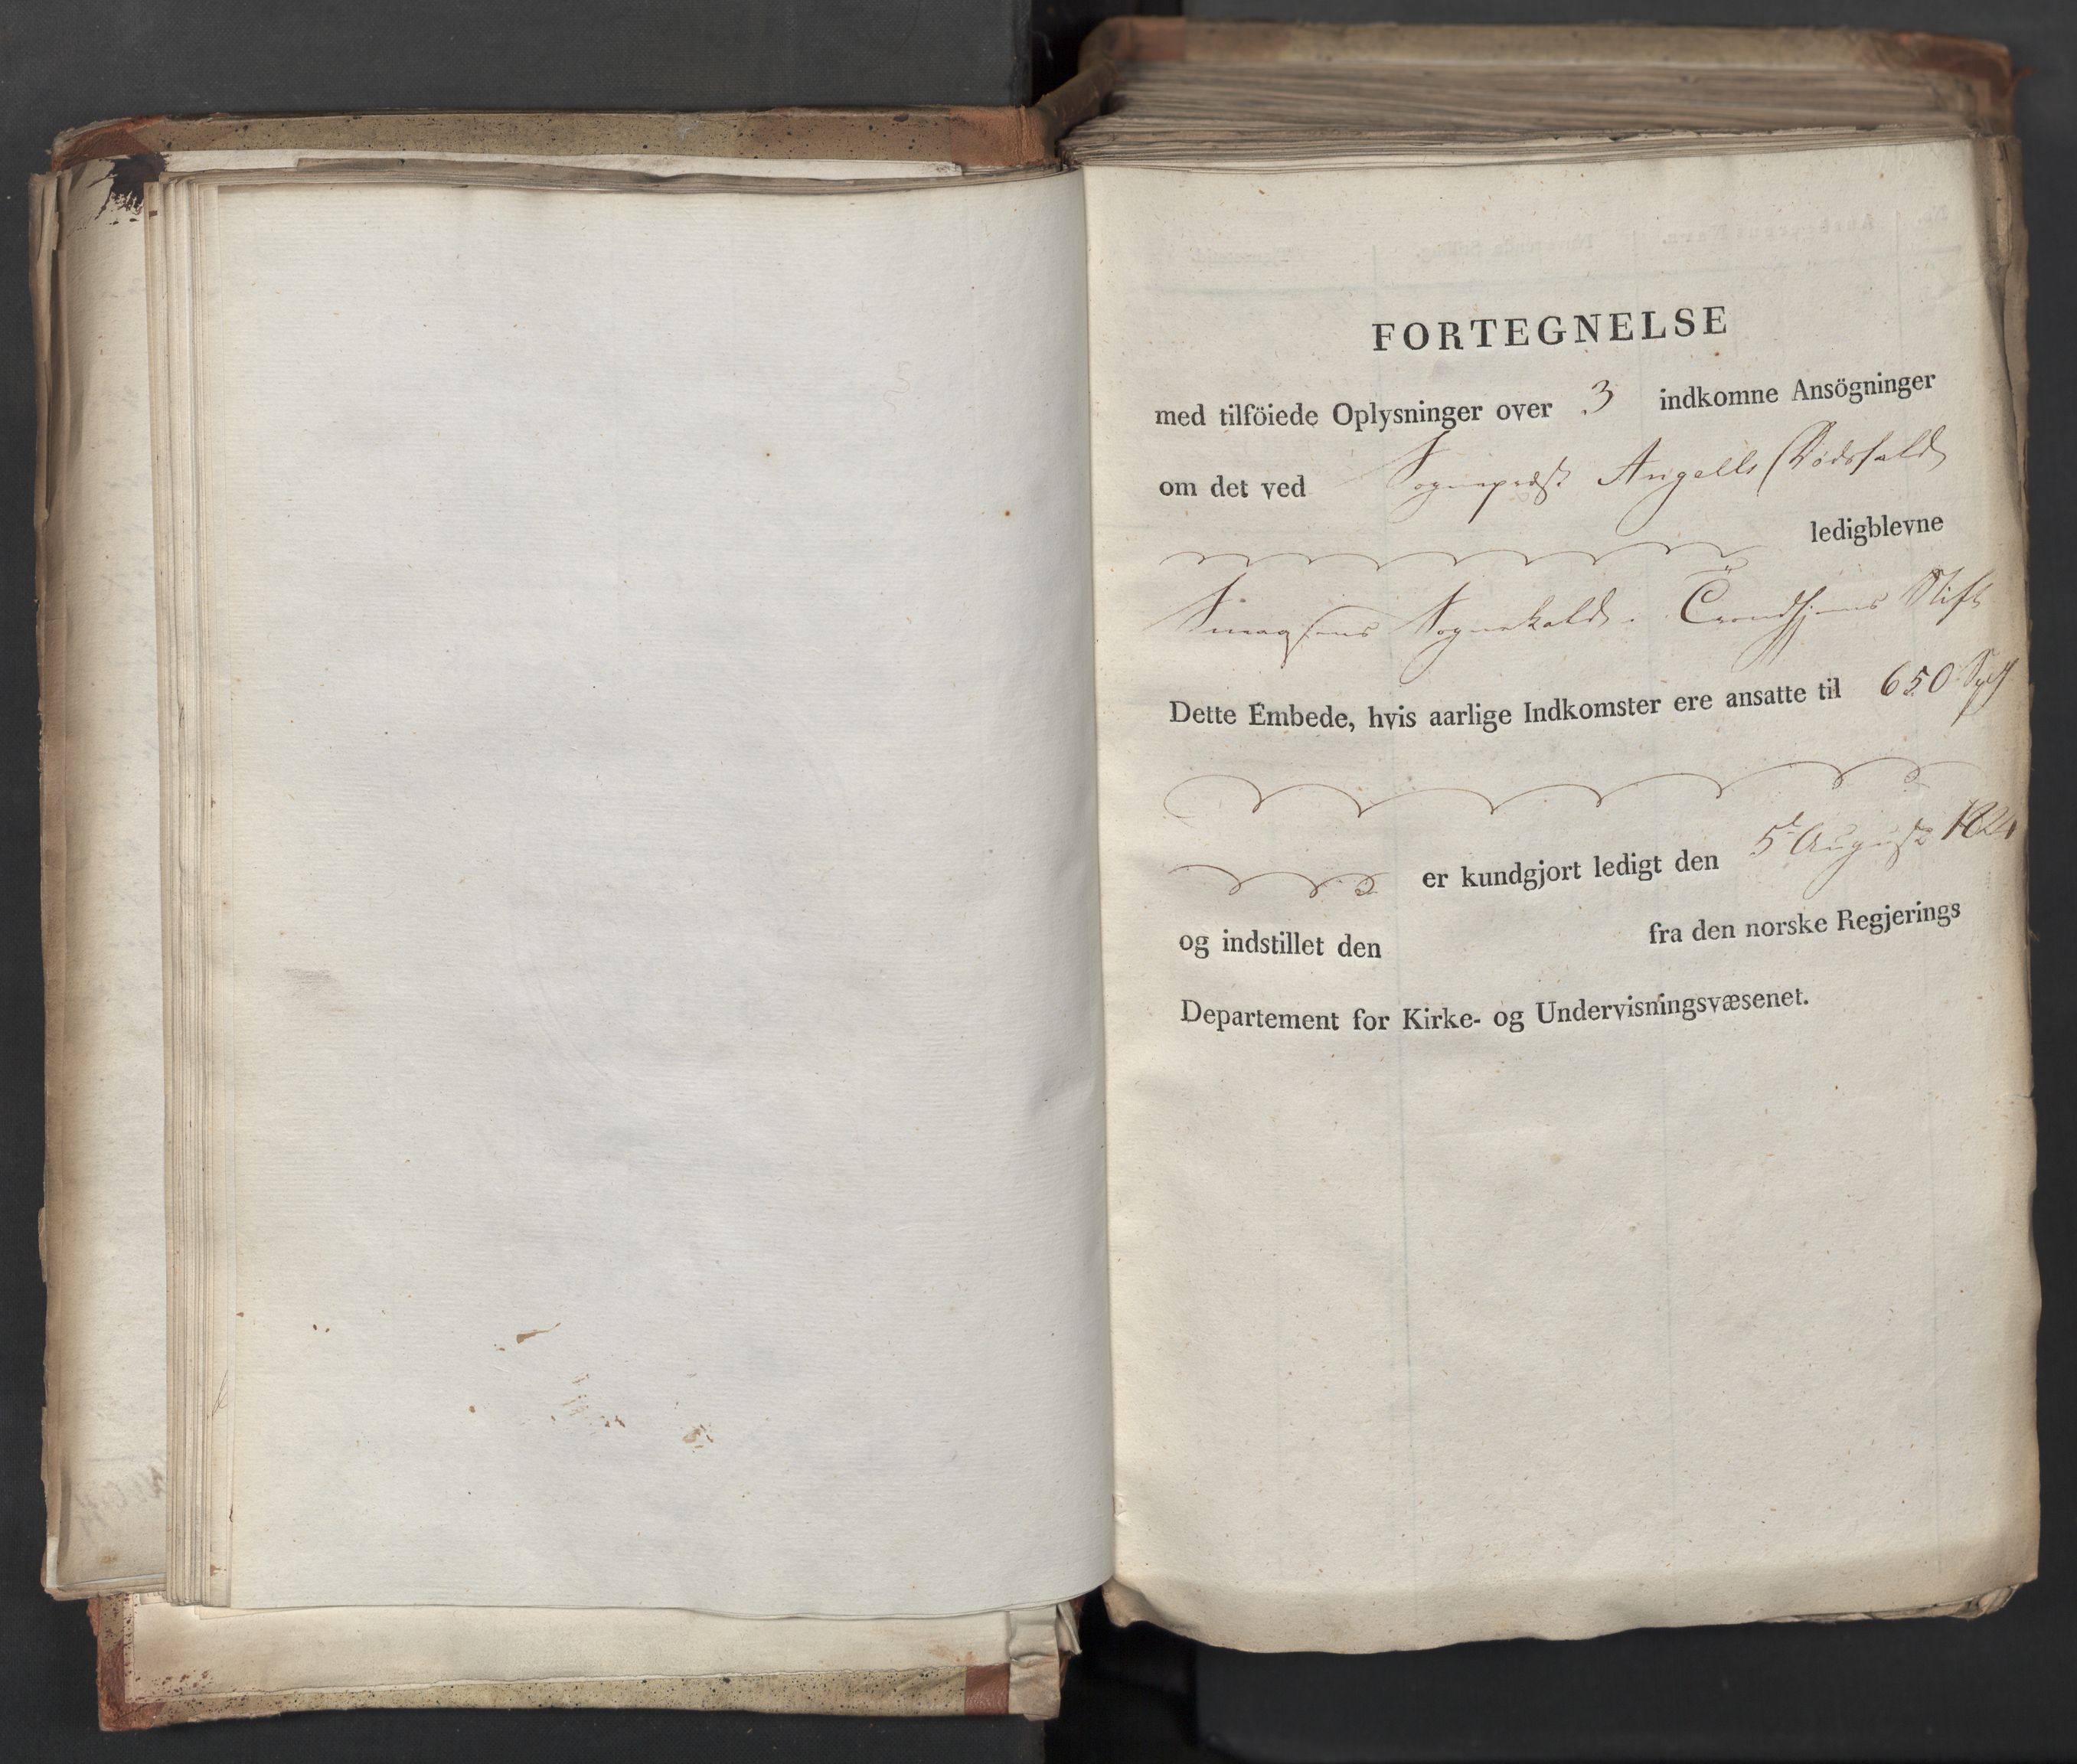 FORTEGNELSE
med tilföiede Oplysninger over 3 indkomne Ansögninger
om det ved Sognepræst Angells Dödsfald
ledigblevne
Sognekald i Trondhjems Stift
Dette Embede, hvis aarlige Indkomster ere ansatte til 650 Spd
er kundgjort ledigt den 5t August 1824
og indstillet den fra den norske Regjerings
Departement for Kirke- og Undervisningsvæsenet.